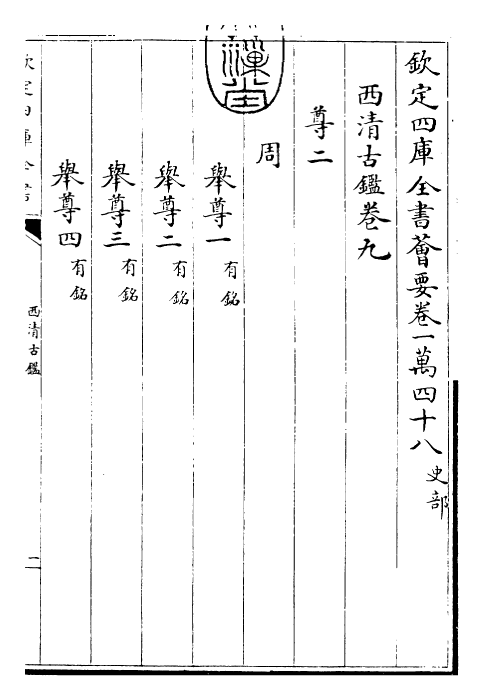 欽定四庫全書薈要卷一萬四十八 史部
西清古鑑卷九
尊二
周
舉尊一 有銘
舉尊二 有銘
舉尊三 有銘
舉尊四 有銘
欽定四庫全書
西清古鑑